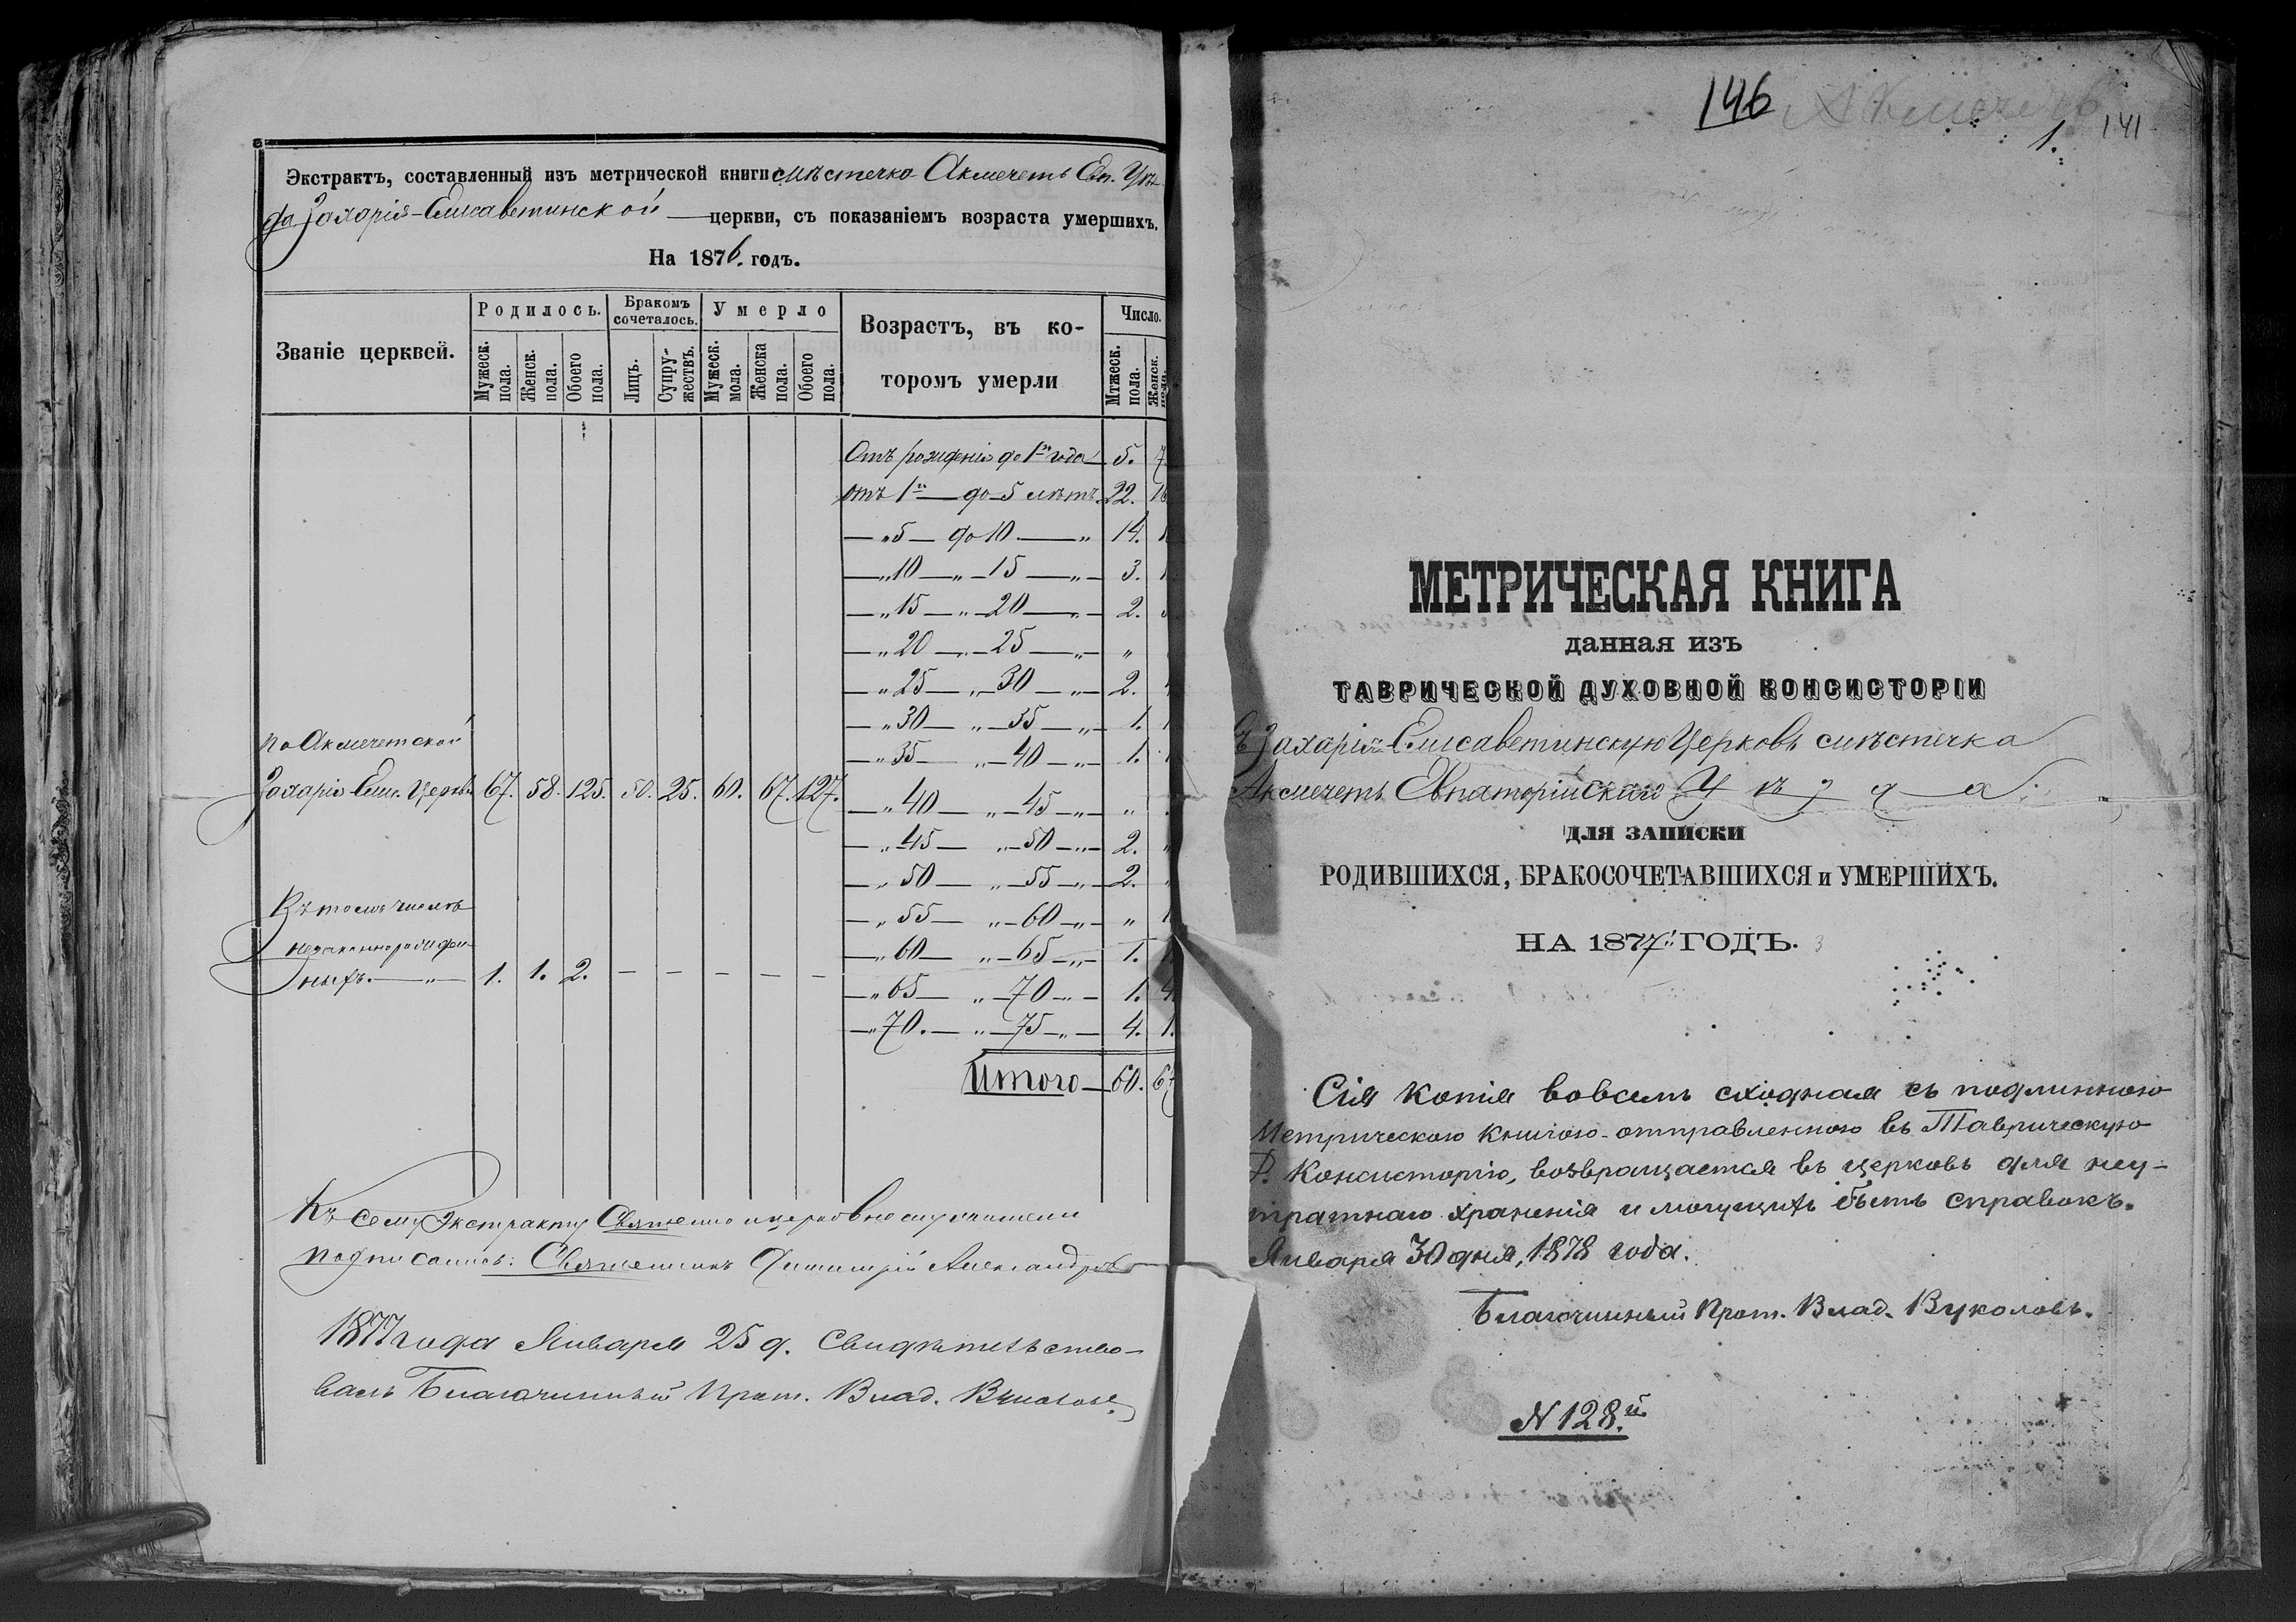 Экстрактъ, составленный изъ метрической книги мѣстечка Акмечеть Евп. Уѣз-
да Захаріе-Елисаветинской церкви, съ показаніемъ возраста умершихъ.
На 1876. годъ.
Званіе церквей.
Родилось.
Бракомъ сочеталось.
Умерло
Возрастъ, въ ко-
торомъ умерли
Число.
Мужеск. пола.
Женск. пола.
Обоего пола.
Лицъ.
Супру-
жествъ.
Мужеск. мола.
Женска пола.
Обоего пола.
Мтжеск. пола.
Женск. пола.
Отъ рожденія до 1го года 5. 7.
отъ 1го до 5 лѣтъ 22. 16
„ 5 до 10 „ 14. 1
„ 10 „ 15 „ 3. 1
„ 15 „ 20 „ 2.
„ 20 „ 25 „ „
„ 25 „ 30 „ 2.
„ 30 „ 35 „ 1. 1
„ 35 „ 40 „ 1. 1
„ 40 „ 45 „ „
„ 45 „ 50 „ 2. „
„ 50 „ 55 „ 2. „
„ 55 „ 60 „ „ 1
„ 60 „ 65 „ 1. 1.
„ 65 „ 70 „ 1. 4.
„ 70. „ 75 „ 4. 1.
Итого 60. 67
по Акмечетской
Захаріе Елис. Церкв. 67. 58. 125. 50. 25. 60. 67. 127.
Въ томъ числѣ
незаконнорожден-
ныхъ. „ 1. 1. 2. – – – – –
Къ сему Экстракту Священно и церковно служители
подписались: Священникъ Димитрій Александровъ
1877 года Января 25 д. Свидѣтельство-
валъ Благочинный Прот. Влад. Вуколовъ
146 Акмечеть
1. 141
МЕТРИЧЕСКАЯ КНИГА
данная изъ
ТАВРИЧЕСКОЙ ДУХОВНОЙ КОНСИСТОРІИ
въ Захаріе-Елисаветинскую Церковь мѣстечка
Акмечеть Евпаторійскаго Уѣзда.
ДЛЯ ЗАПИСКИ
РОДИВШИХСЯ, БРАКОСОЧЕТАВШИХСЯ и УМЕРШИХЪ.
НА 1877й ГОДЪ. 3
Сія копія вовсемъ сходная съ подлинною
Метрическою книгою отправленною въ Таврическую
Д. Консисторію, возвращается въ церковь для неу-
тратнаго храненія и могущихъ быть справокъ.
Января 30 дня, 1878 года.
Благочинный Прот. Влад. Вуколовъ.
N 128.й